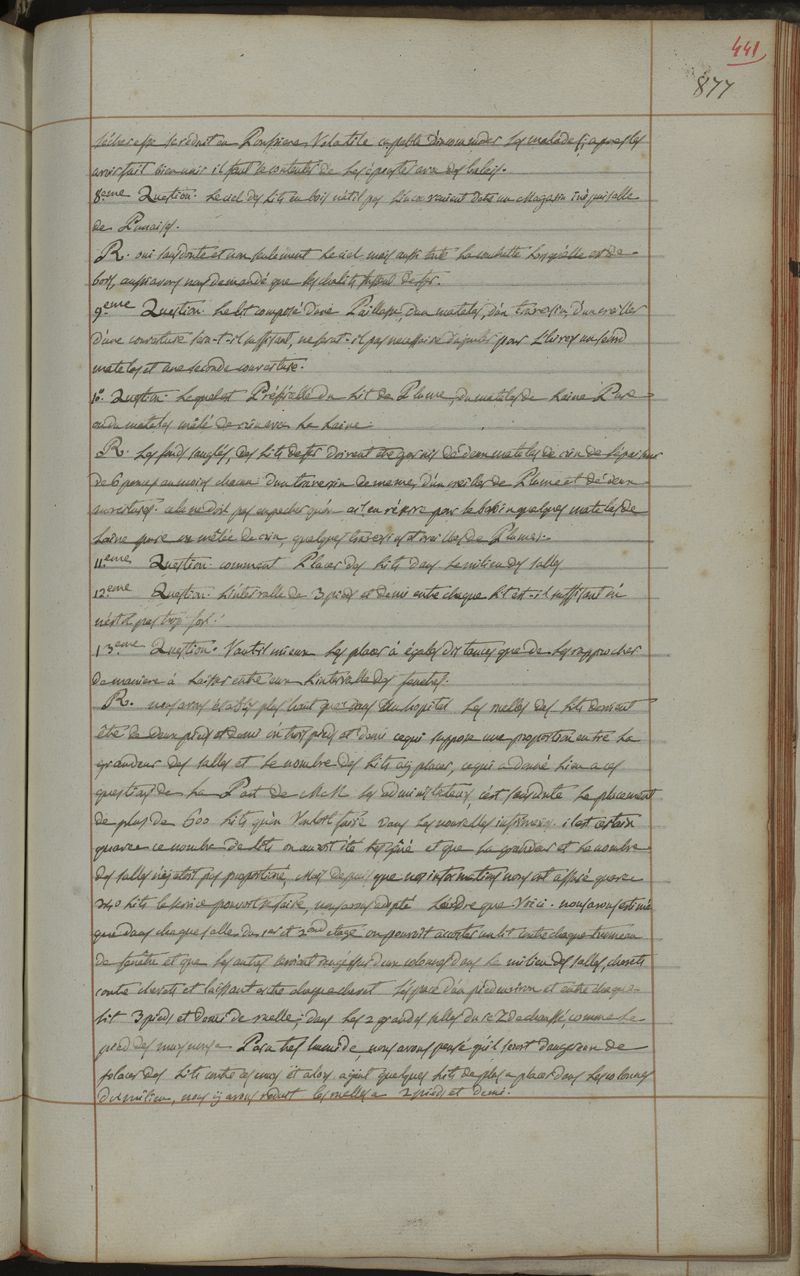 441
877
sécheresse se réduit en Poussiere Volatile capable d'incommoder les malades; apres les
avoir fait bien unir il faut se contenter de les épouster avec des balais.
8.eme Question. Le ciel des lits en bois n'est il pas l'inconvenient d'etre un Magasin inépuisable
de Punaises.
R. oui sans doute et non seulement le ciel mais aussi toute la couchette lorsqu'elle est de
bois, aussi avons nous demandé que les chalits fussent de fer.
9.eme Question. Le lit composé d'une Paillasse, d'un matelas, d'un traversin, d'un oreiller
d'une couverture sera-t-il suffisant, ne serat-il pas necessaire d'ajouter pour L'hiver un second
matelas et une seconde couverture.
10.e Question. Lequel est Préférable du Lit de Plume, du matelas de Laine Pure
ou du matelas mêlé de crin avec La Laine
R. Les fonds sanglés, des Lits de fer doivent être garnis de deux matelas de crin de l'épaisseur
de 6 pouces au moins chacun d'un traversin de meme, d'un oreiller de Plume et de deux
couvertures. cela ne doit pas empecher qu'on ait en réserve pour le besoin quelques matelas de
Laine pure ou mêlée de crin, quelques traversins et oreillers de Plumes.
11.eme Question. comment Placer des Lits dans le milieu des salles
12.eme Question. L'intervalle de 3 pieds et demie entre chaque Lit est-il suffisant ou
n'est il pas trop fort.
13.eme Question. Vaut il mieux Les placer à égales distances que de Les rapprocher
de maniere à Laisser entre eux L'intervalle des fenetres.
R. nous avons établis plus haut que dans un hopital Les ruelles des Lits devoient
être de deux pieds et demi ou trois pieds et demi ce qui suppose une proportion entre La
grandeur des salles et Le nombre des Lits a y placer, ce qui a donné Lieu a ces
questions de La Part de MM. les administrateurs, c'est sans doute Le placement
de plus de 600 Lits qu'on Vouloit faire dans Les nouvelles infirmeries. il est certain
qu'avec ce nombre de Lits on auroit été tres gêné et que La grandeur et Le nombre
des salles n'y etoit pas proportionné, Mais depuis que nos informations nous ont assuré qu'avec
240 Lits Le service pouvoit se faire, nous avons adopté L'ordre que Voici. nous avons estimé
que dans chaque salle du 1er et 2nd étage on pouvoit accoster un lit contre chaque trumeau
de fenêtre et que Les autres seroient rangés sur deux colonnes dans Le milieu des salles, chevets
contre chevets et laissant entre chaque chevet L'espace d'un pied environ et entre chaque
Lit 3 pieds et demi de ruelle; dans Les 2 grandes salles du rez de chaussé, comme Le
pied des murs nous a Paru tres humide, nous avons pensé qu'il seroit dangereux de
placer des Lits contre ces murs et alors ayant quelques Lits de plus a placer dans Les colonnes
du milieu, nous y avons réduit les ruelles a 2 pieds et demi.